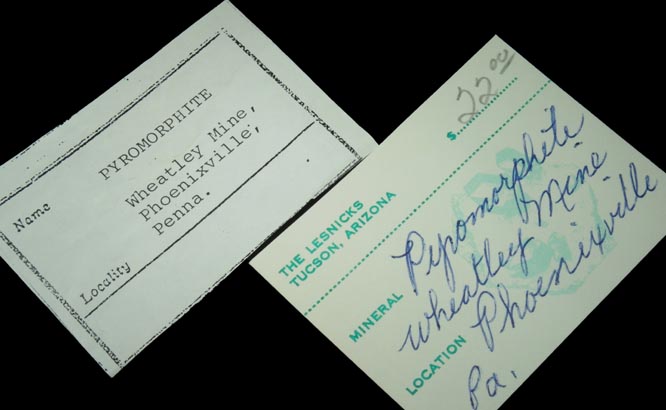 Name PYROMORPHITE
Wheatley Mine,
Phoenixville,
Locality Penna.
$ 22.00
THE LESNICKS
TUCSON, ARIZONA
MINERAL Pyromorphite
Wheatley Mine
LOCATION Phoenixville
Pa.